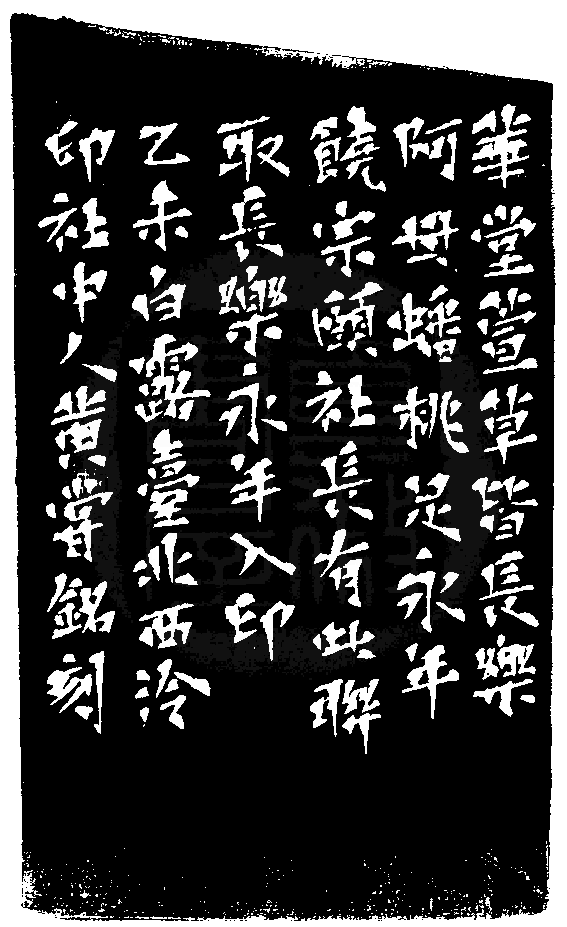 華堂萱草皆長樂
阿母蟠桃是永年
饒宗頤社長有此聯
取長樂永年入印
乙未白露臺北西泠
印社中人黃嘗銘刻